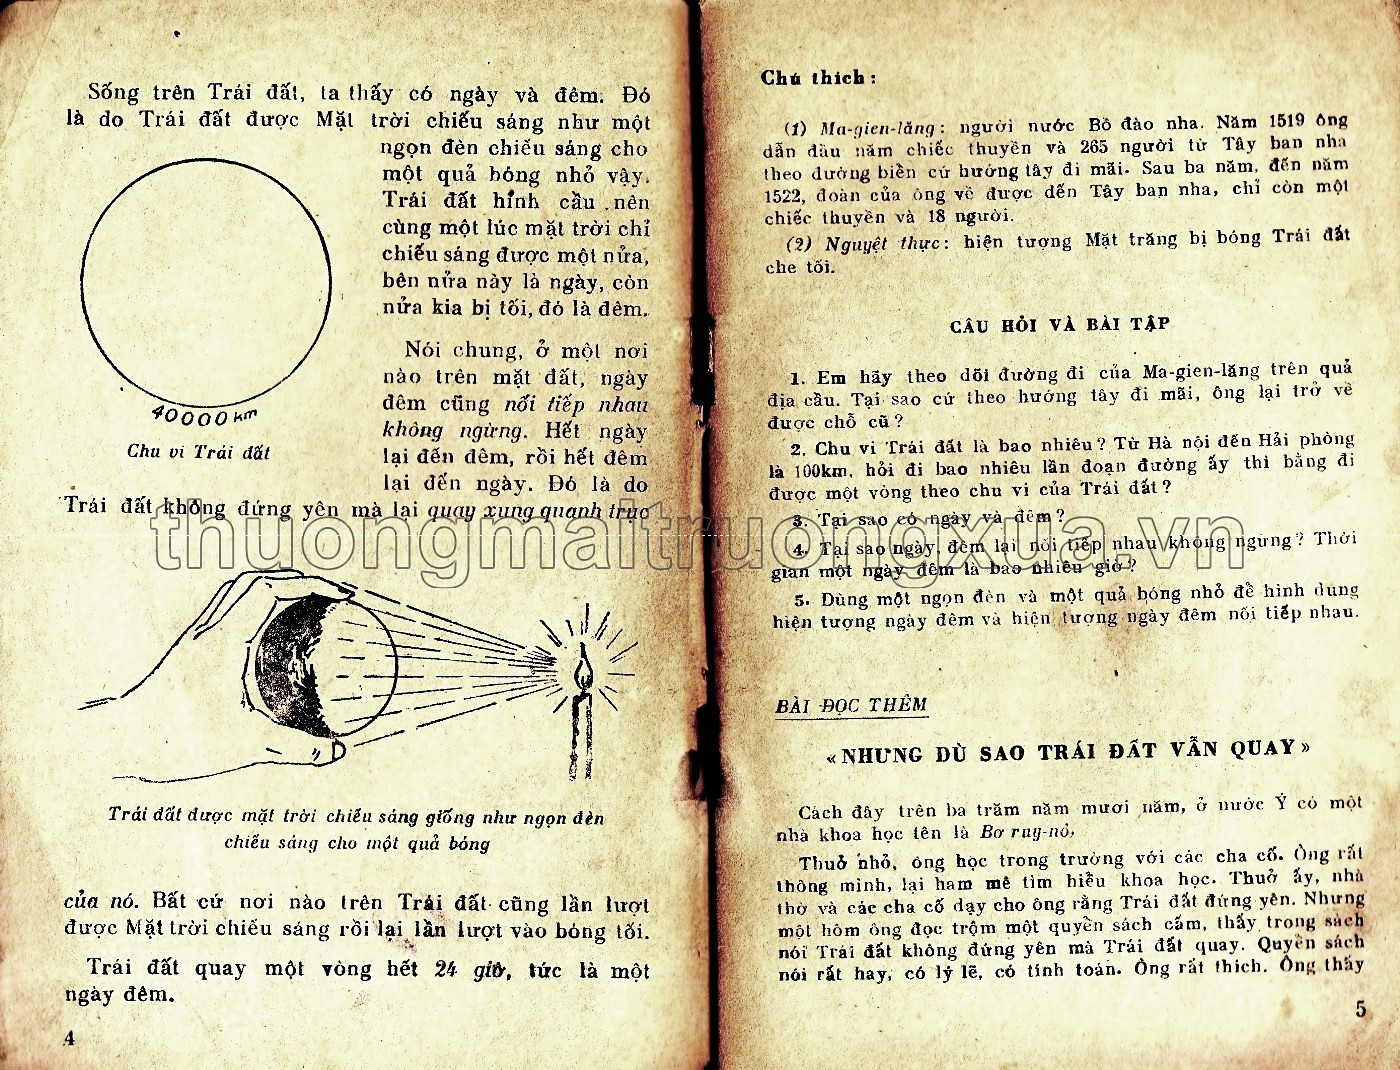 Sống trên Trái đất, ta thấy có ngày và đêm. Đó
là do Trái đất được Mặt trời chiếu sáng như một
ngọn đèn chiếu sáng cho
một quả bóng nhỏ vậy.
Trái đất hình cầu nên
cùng một lúc mặt trời chỉ
chiếu sáng được một nửa,
bên nửa này là ngày, còn
nửa kia bị tối, đó là đêm.
Nói chung, ở một nơi
nào trên mặt đất, ngày
đêm cũng nối tiếp nhau
không ngừng. Hết ngày
lại đến đêm, rồi hết đêm
lại đến ngày. Đó là do
40000km
Chu vi Trái đất
Trái đất không đứng yên mà lại quay xung quanh trục
Trái đất được mặt trời chiếu sáng giống như ngọn đèn
chiếu sáng cho một quả bóng
của nó. Bất cứ nơi nào trên Trái đất cũng lần lượt
được Mặt trời chiếu sáng rồi lại lần lượt vào bóng tối.
Trái đất quay một vòng hết 24 giờ, tức là một
ngày đêm.
4
Chú thích :
(1) Ma-gien-lăng : người nước Bồ đào nha. Năm 1519 ông
dẫn đầu năm chiếc thuyền và 265 người từ Tây ban nha
theo đường biển cứ hướng tây đi mãi. Sau ba năm, đến năm
1522, đoàn của ông về được đến Tây ban nha, chỉ còn một
chiếc thuyền và 18 người.
(2) Nguyệt thực : hiện tượng Mặt trăng bị bóng Trái đất
che tối.
CÂU HỎI VÀ BÀI TẬP
1. Em hãy theo dõi đường đi của Ma-gien-lăng trên quả
địa cầu. Tại sao cứ theo hướng tây đi mãi, ông lại trở về
được chỗ cũ ?
2. Chu vi Trái đất là bao nhiêu ? Từ Hà nội đến Hải phòng
là 100km, hỏi đi bao nhiêu lần đoạn đường ấy thì bằng đi
được một vòng theo chu vi của Trái đất ?
3. Tại sao có ngày và đêm ?
4. Tại sao ngày, đêm lại nối tiếp nhau không ngừng ? Thời
gian một ngày đêm là bao nhiêu giờ ?
5. Dùng một ngọn đèn và một quả bóng nhỏ để hình dung
hiện tượng ngày đêm và hiện tượng ngày đêm nối tiếp nhau.
thuongmaitruongxua.vn
BÀI ĐỌC THÊM
« NHƯNG DÙ SAO TRÁI ĐẤT VẪN QUAY »
Cách đây trên ba trăm năm mươi năm, ở nước Ý có một
nhà khoa học tên là Bơ ruy-nô,
Thuở nhỏ, ông học trong trường với các cha cố. Ông rất
thông minh, lại ham mê tìm hiểu khoa học. Thuở ấy, nhà
thờ và các cha cố dạy cho ông rằng Trái đất đứng yên. Nhưng
một hôm ông đọc trộm một quyển sách cấm, thấy trong sách
nói Trái đất không đứng yên mà Trái đất quay. Quyển sách
nói rất hay, có lý lẽ, có tính toán. Ông rất thích. Ông thấy
5